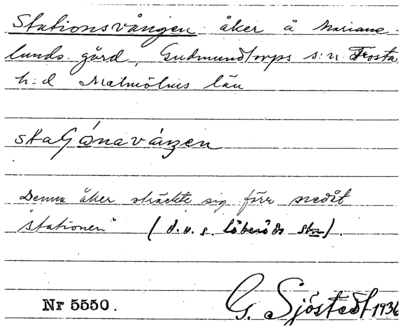 Stationsvången åker å Mariane-
lunds gård, Gudmundtorps s:n Frosta
h:d Malmöhus län
staʃónavάŋen
Denna åker sträckte sig förr nedåt
"stationen" (d.v.s. Löberöds stn).
Nr 5550. G. Sjöstedt 1936